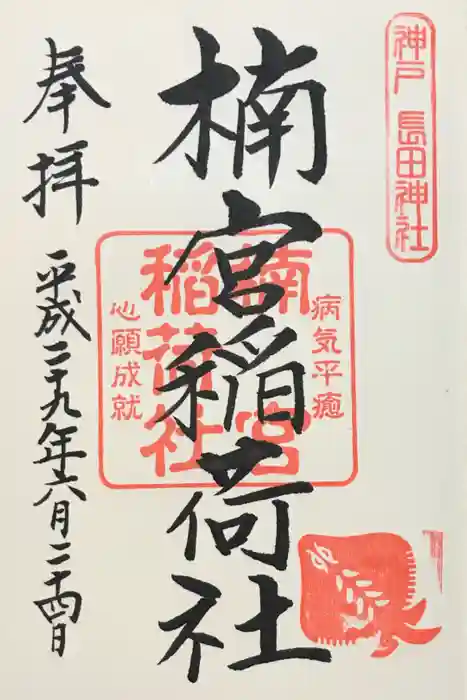 神戸 長田神社
楠宮稲荷社
病気平癒
楠宮
稲荷社
心願成就
奉拝
平成二十九年六月二十四日